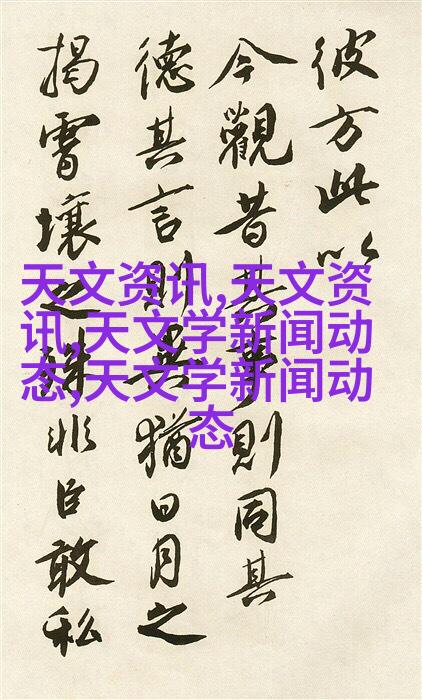 彼方此以
今觀昔其事則同其
德其言則異猶日月之
揭霄壤之殊非臣敢私
天文资讯,天文资
讯,天文学新闻动
态,天文学新闻动
态